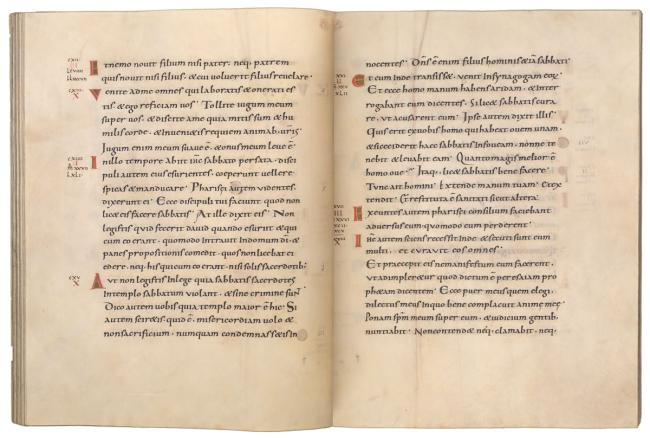 Et nemo novit filium nisi pater · neq; patrem
quis novit nisi filius · & cui voluerit filius revelare ·
Venite ad me omnes qui laboratis & onerati es
tis & ego reficiam vos · Tollite iugum meum
super vos · & discite a me quia mitis sum & hu
milis corde · & invenietis requiem animab; vr̄is ·
Iugum enim meum suave ē · & onus meum leve ē ·
In illo tempore abiit ih̄c sabbato per sata · disci
puli autem eius esurientes · coeperunt vellere
spicas & manducare · Pharisei autem videntes ·
dixerunt ei · Ecce discipuli tui faciunt quod non
lic& eis facere sabbatis · At ille dixit eis · Non
legistis quid fecerit david quando esuriit & qui
cum eo erant · quomodo intravit in domum dī · &
panes propositionis comedit · quos non licebat ei
edere · neq; his qui cum eo erant · nisi solis sacerdotib;
Aut non legistis in lege quia sabbatis sacerdotes
in templo sabbatum violant · & sine crimine sun̄
Dico autem vobis quia templo maior ē hic · Si
autem scir&is · quid ē · misericordiam volo &
non sacrificium · numquam condemnass&is in
nocentes · Dn̄s ē enim filius hominis & iā sabbati
Et cum inde transiss& · venit in synagogam eoꝝ ·
Et ecce homo manum habens aridam · & inter
rogabant eum dicentes · Si lic& sabbatis cura
re · ut accusarent eum · Ipse autem dixit illis ·
Quis erit ex vobis homo qui habeat ovem unam ·
& si ceciderit haec sabbatis in foveam · nonne te
nebit & levabit eam · Quanto magis melior ē
homo ove · Itaq; lic& sabbatis bene facere ·
Tunc ait homini · Extende manum tuam · Et ex
tendit · Et restituta ē sanitati sicut altera ·
Exeuntes autem pharisei consilium faciebant
adversus eum quomodo eum perderent ·
Ih̄c autem sciens recessit inde · & secuti sunt eum
multi · et curavit eos omnes ·
Et praecepit eis ne manifestum eum facerent ·
ut adimpler&ur quod dictum ē per esaiam pro
ph&am dicentem · Ecce puer meus quem elegi ·
dilectus meus in quo bene complacuit animę meę ·
Ponam sp̄m meum super eum · & iudicium gentib;
nuntiabit · Non contend& neq; clamabit · neq;